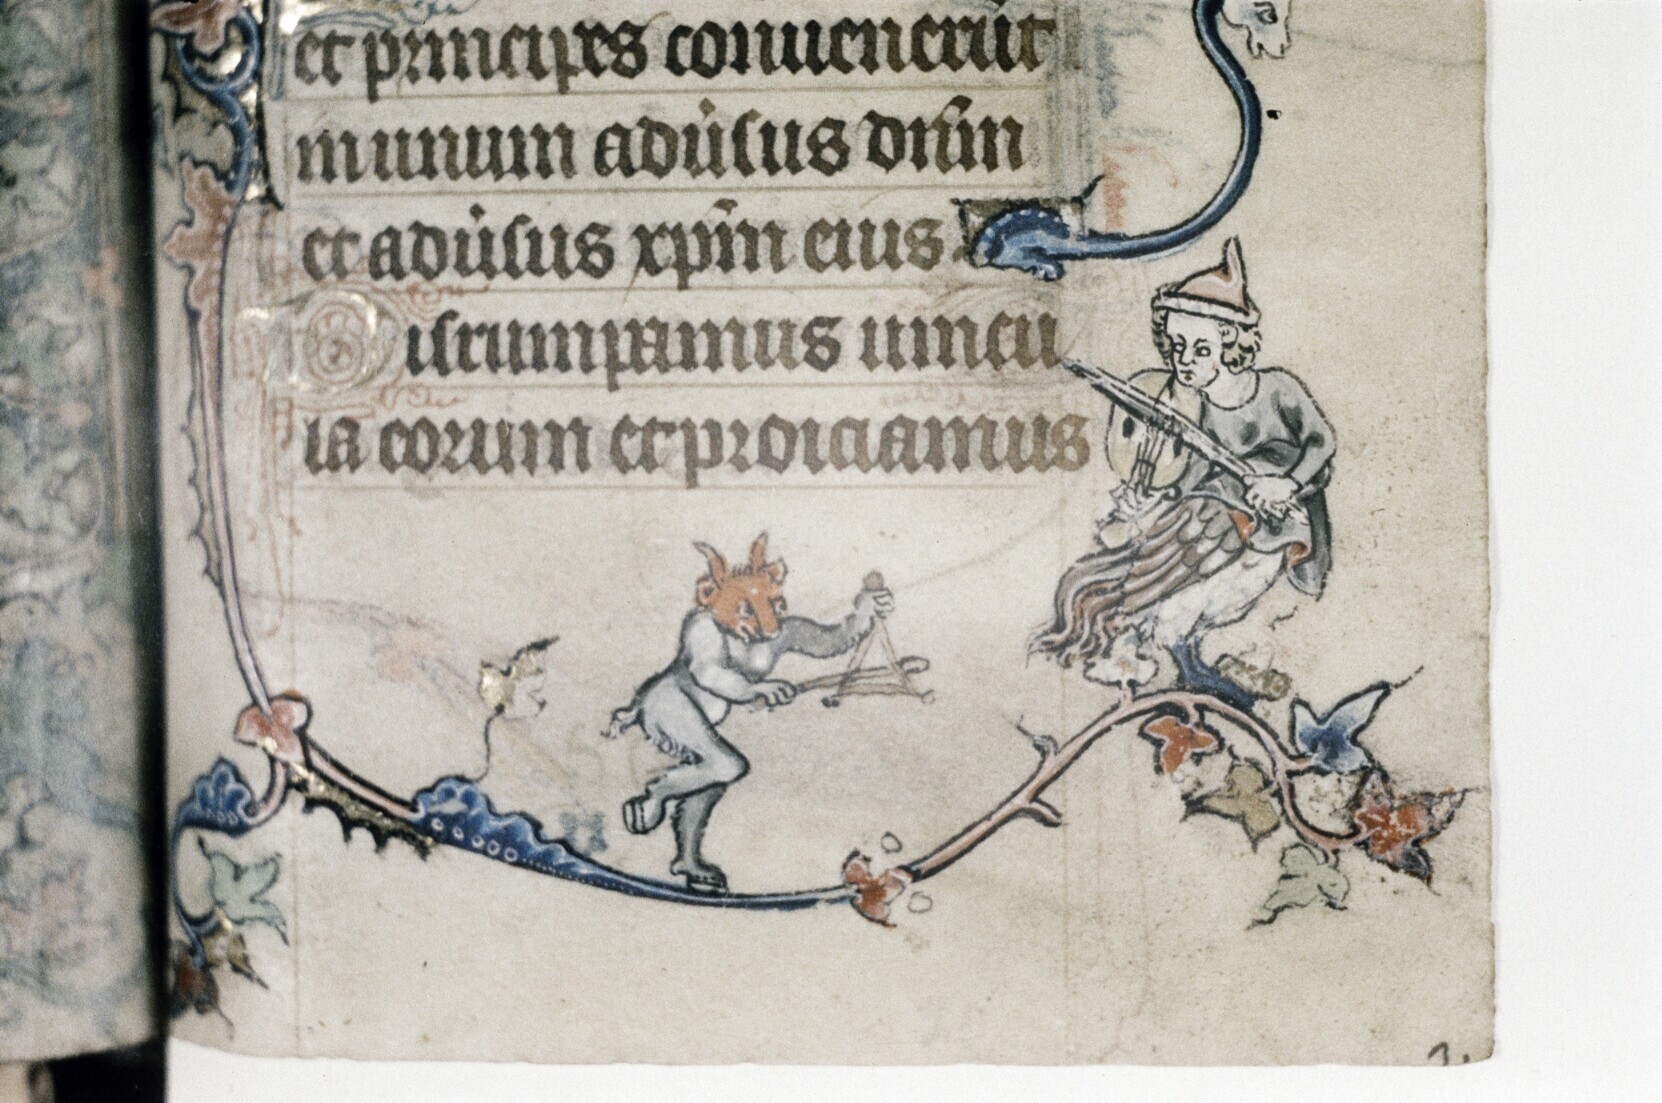 et principes conuenerūt
in unum adūsus dn̄m
et adūsus xp̄m eius
Disrumpamus uincu
la eorum et proiciamus
3.